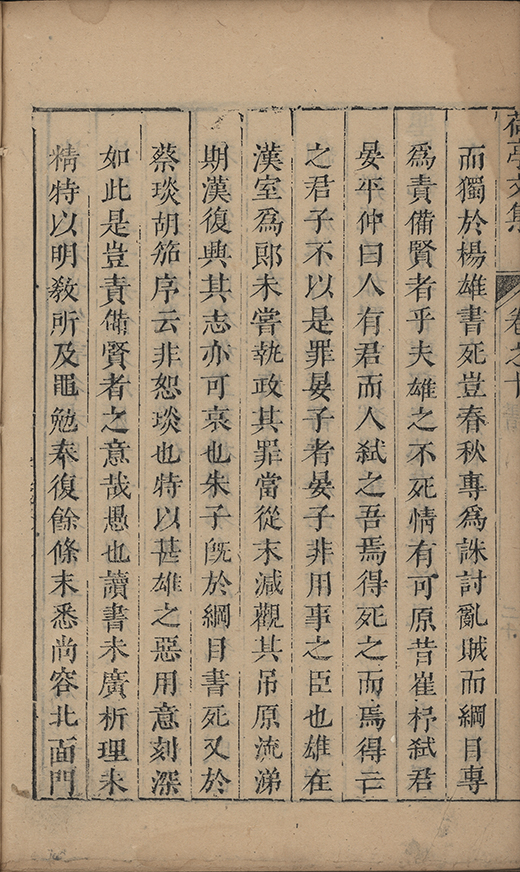 荷亭文集 卷之十
而獨於楊雄書死豈春秋專爲誅討亂賊而綱目專
爲責備賢者乎夫雄之不死情有可原昔崔杼弑君
晏平仲曰人有君而人弑之吾焉得死之而焉得亡
之君子不以是罪晏子者晏子非用事之臣也雄在
漢室爲郞未嘗執政其罪當從末減觀其吊原流涕
期漢復興其志亦可哀也朱子旣於綱目書死又於
蔡琰胡笳序云非恕琰也特以甚雄之惡用意刻深
如此是豈責備賢者之意哉愚也讀書未廣析理未
精特以明敎所及黽勉奉復餘條末悉尚容北面門